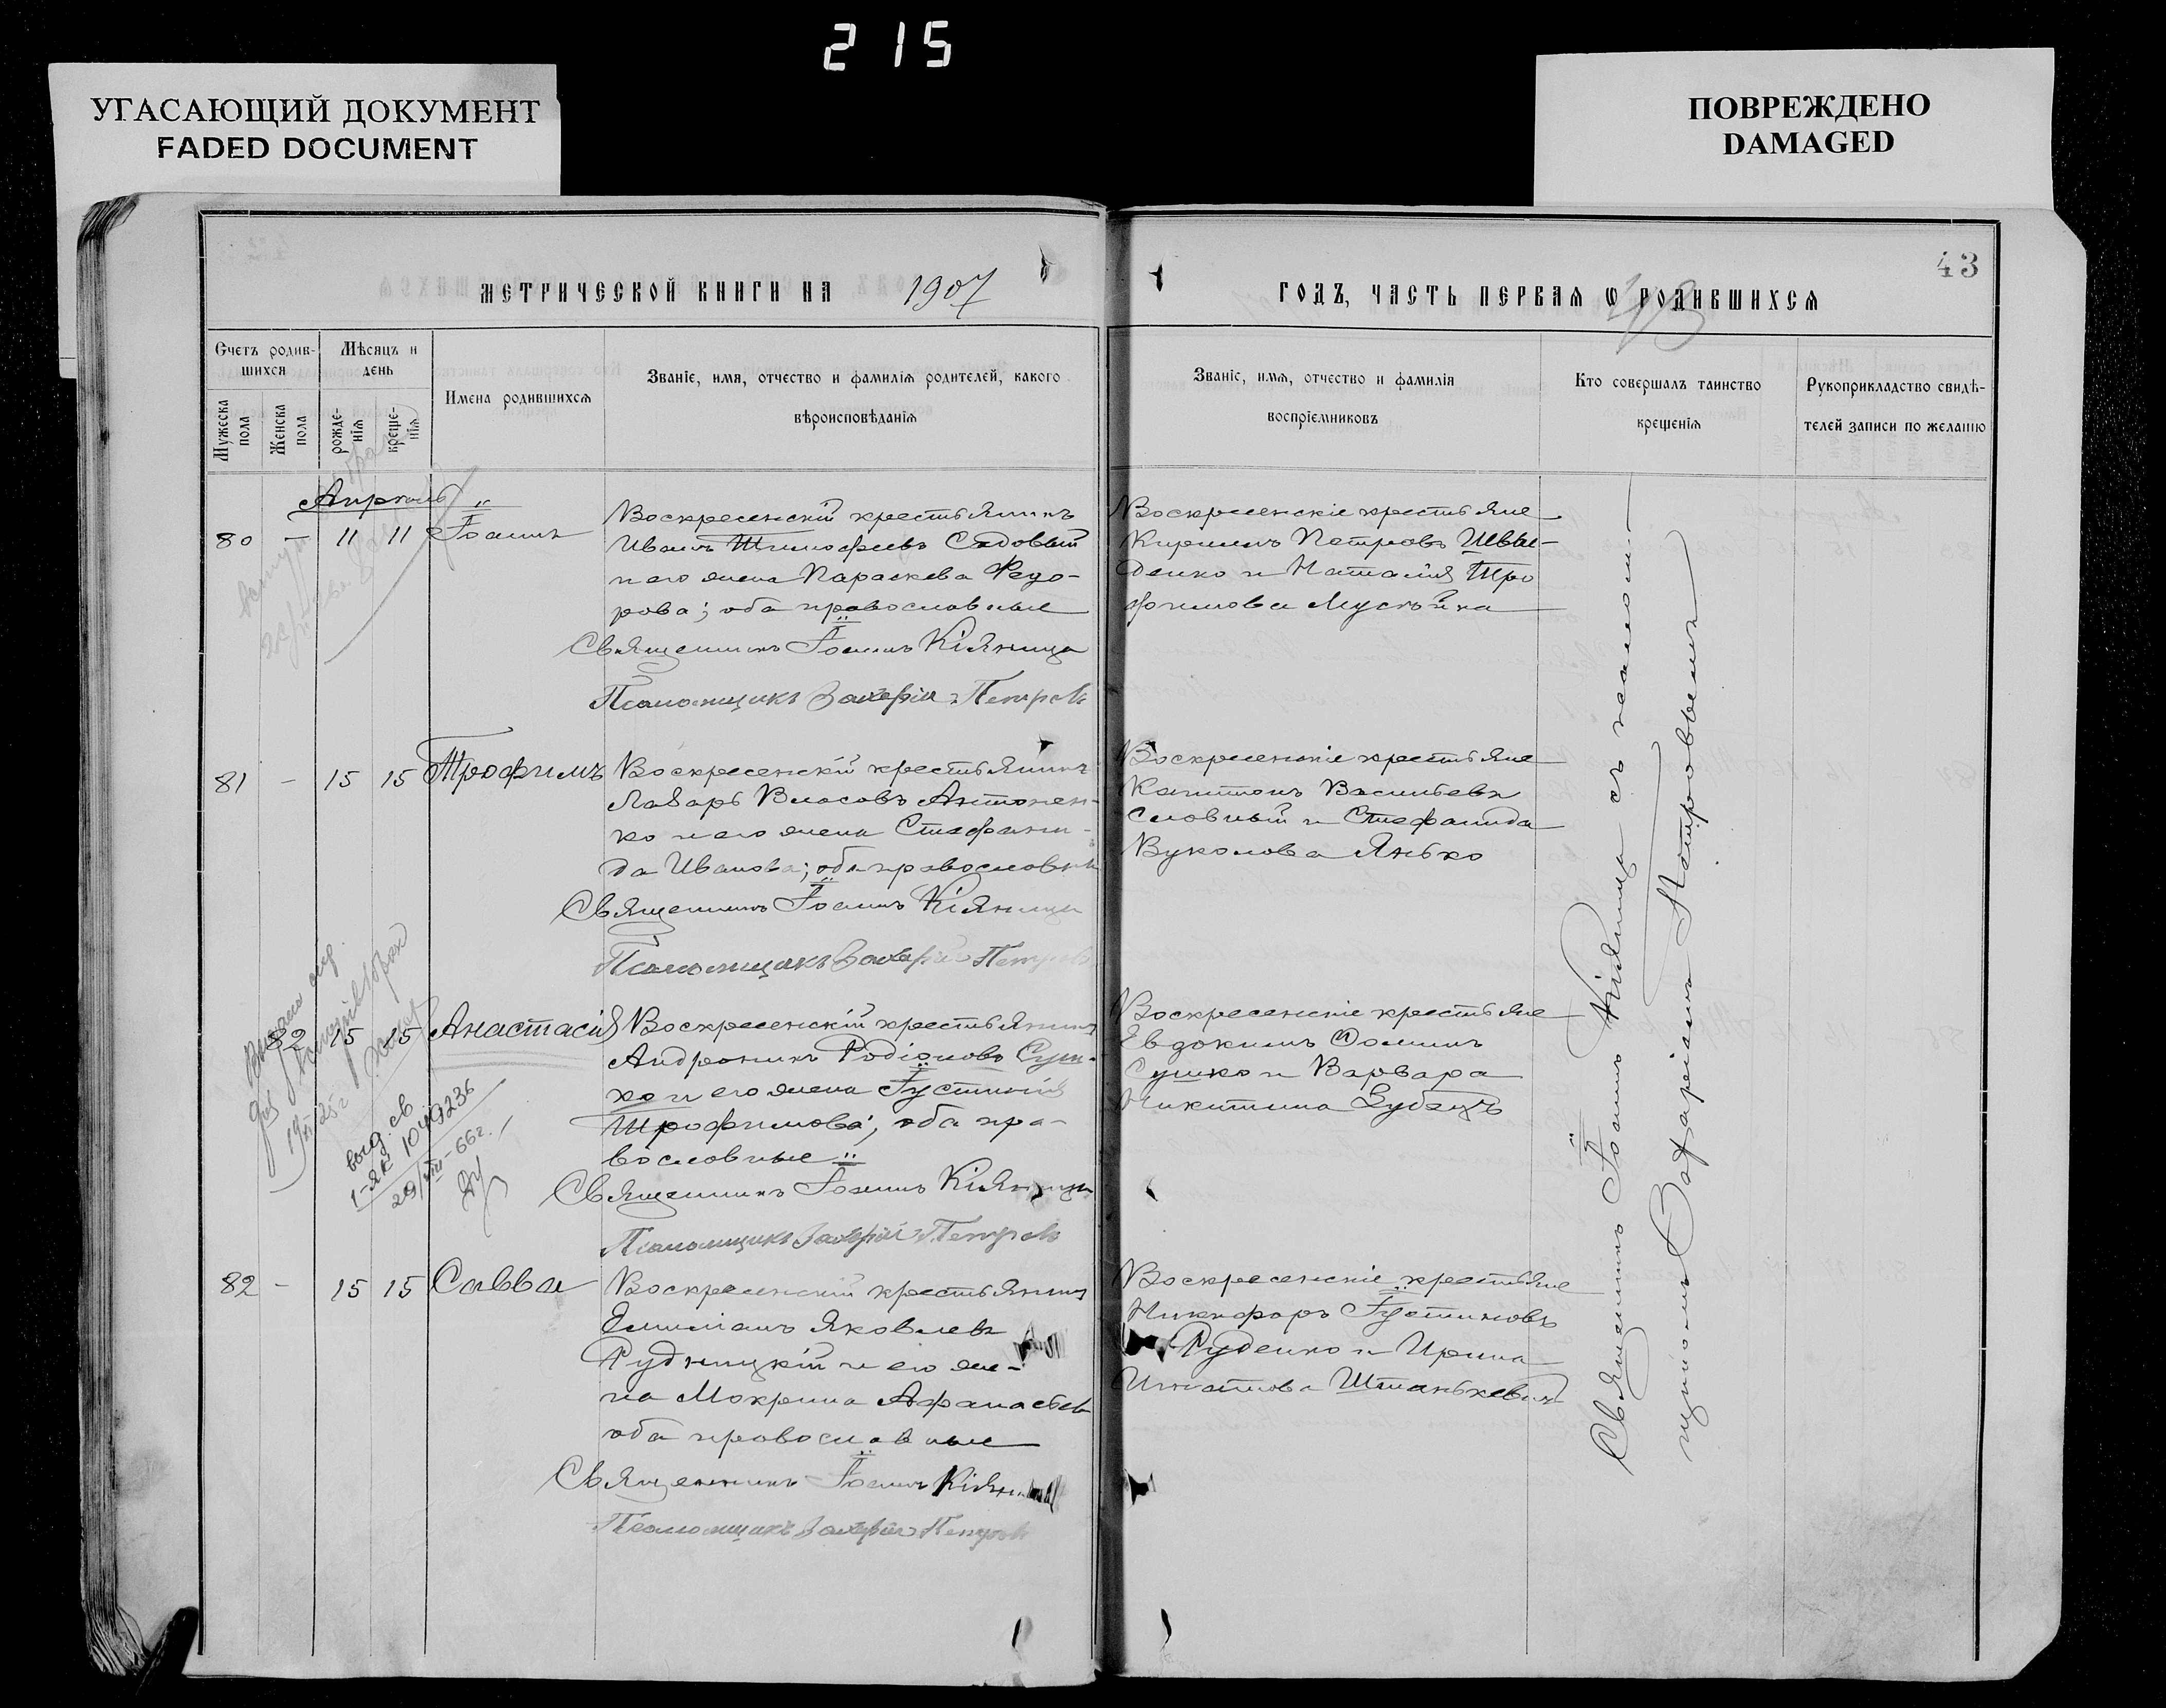 215
УГАСАЮЩИЙ ДОКУМЕНТ
FADED DOCUMENT
ПОВРЕЖДЕНО
DAMAGED
43
МЕТРИЧЕСКОЙ КНИГИ НА 1907
ГОДЪ, ЧАСТЬ ПЕРВАЯ Ѡ РОДИВШИХСЯ
Счетъ родив-
шихся
Мѣсяцъ и
день
Мужеска
пола
Женска
пола
рожде-
нія
креще-
нія
Имена родившихся
Званіе, имя, отчество и фамилія родителей, какого
вѣроисповѣданія
Званіе, имя, отчество и фамилія
воспріемниковъ
Кто совершалъ таинство
крещенія
Рукоприкладство свидѣ-
телей записи по желанію
Апрѣль
80 - 11 11 Іоаннъ
Воскресенскій крестьянинъ
Иванъ Тимофеевъ Садовый
и его жена Параскева Федо-
рова; оба православные
Священникъ Іоаннъ Кіяница
Псаломщикъ Захарій Петровъ
Воскресенскіе крестьяне
Кириллъ Петровъ Швы-
денко и Наталія Тро
фимова Мусѣйна
81 - 15 15 Трофимъ
Воскресенскій крестьянинъ
Лазарь Власовъ Антонен-
ко и его жена Стефани-
да Иванова; оба православн
Священникъ Іоаннъ Кіяница
Псаломщикъ Захарій Петровъ
Воскресенскіе крестьяне
Капитонъ Васильевъ
Словный и Стефанида
Вуколова Янько
82 15 15 Анастасія
Воскресенскій крестьянинъ
Андроникъ Родіоновъ Суш-
ко и его жена Іустинія
Трофимова; оба пра-
вославные
Священникъ Іоаннъ Кіяница
Псаломщикъ Захарій Петровъ
Воскресенскіе крестьяне
Евдокимъ Ѳоминъ
Сушко и Варвара
Никитина Зубецъ
выд. св
1-ЯК 1049236
29/VIII-66г.
82 - 15 15 Савва
Воскресенскій крестьянинъ
Емиліанъ Яковлевъ
Рудницкій и его же-
на Мокрина Афанасьев
оба православные
Священникъ Іоаннъ Кіяни
Псаломщикъ Захарій Петровъ
Воскресенскіе крестьяне
Никифоръ Іустиновъ
Руденко и Ирина
Игнатова Штанькевичъ
Священникъ Іоаннъ Кіяница съ псалом-
щикомъ Захаріемъ Петровымъ